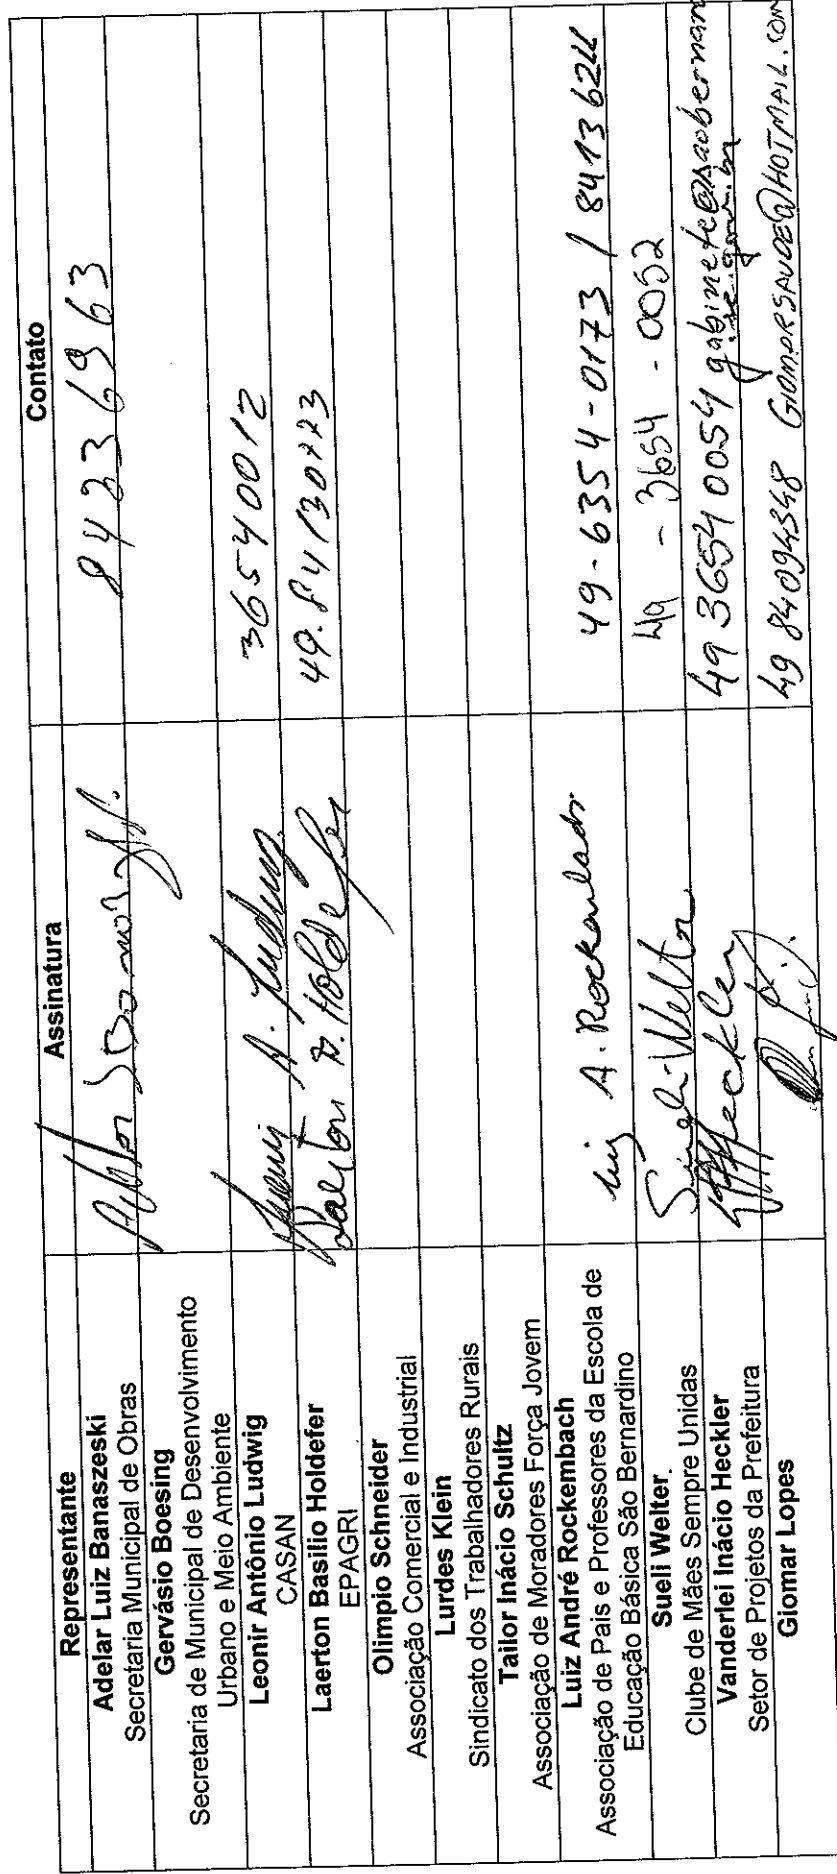 Representante Assinatura Contato
Adelar Luiz Banaszeski
Secretaria Municipal de Obras
84236963
Gervásio Boesing
Secretaria de Municipal de Desenvolvimento
Urbano e Meio Ambiente
Leonir Antônio Ludwig
CASAN
A. Ludwig
36540012
Laerton Basilio Holdefer
EPAGRI
Laerton B. Holdefer
Olimpio Schneider
Associação Comercial e Industrial
Lurdes Klein
Sindicato dos Trabalhadores Rurais
Tailor Inácio Schultz
Associação de Moradores Força Jovem
Luiz André Rockembach
Associação de Pais e Professores da Escola de
Educação Básica São Bernardino
Luiz A. Rockembach
49-6354-0173 / 84136211
Sueli Welter
Clube de Mães Sempre Unidas
Sueli Welter
49 - 3654 - 0052
Vanderlei Inácio Heckler
Setor de Projetos da Prefeitura
Heckler
49 36540054 gabinete@saobernar
Giomar Lopes
49 84094348 GIOMARSAUDE@HOTMAIL.COM